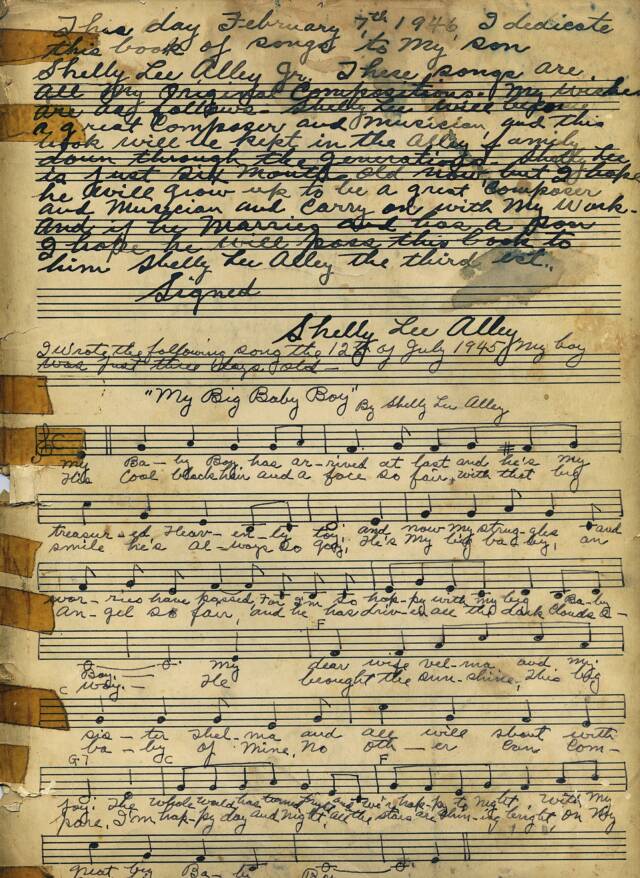 This day February 7th 1946, I dedicate
this book of songs to My son
Shelly Lee Alley Jr. These songs are
all My Original Compositions. My wishes
are as follows. Shelly Lee will become
a great Composer and Musician and this
book will be kept in the Alley family
down through the generations. Shelly Lee
is just six Months old now but I hope
he will grow up to be a great Composer
and Musician and Carry on with My Work-
And if he Marries and has a son
I hope he will pass this book to
him Shelly Lee Alley the third
Signed
Shelly Lee Alley
I wrote the following song the 12th of July 1945, My boy
was just three days old-
"My Big Baby Boy" By Shelly Lee Alley
My Ba-by Boy, has ar-rived at last and he's My
His Cool black hair and a face so fair, with that big
treasur-ed, Heav-en-ly toy; and now My strug-gles and
smile he's al-ways so gay, He's My big ba-by, an
wor-ries have passed For I'm so hap-py with my big Ba-by
An-gel so fair, and he has driv-en all the dark Clouds a-
F
Boy. My dear wife Vel-ma and My
way.- He brought the sun-shine, this big
C
sis-ter Shel-ma and all will shout with
ba-by of Mine, No oth-er Can Com-
G7 C F
joy; The whole world has turned and we're hap-py to night, with My
pare, I'm hap-py day and night, all the stars are shin-ing bright, on My
Great big Ba-by Boy